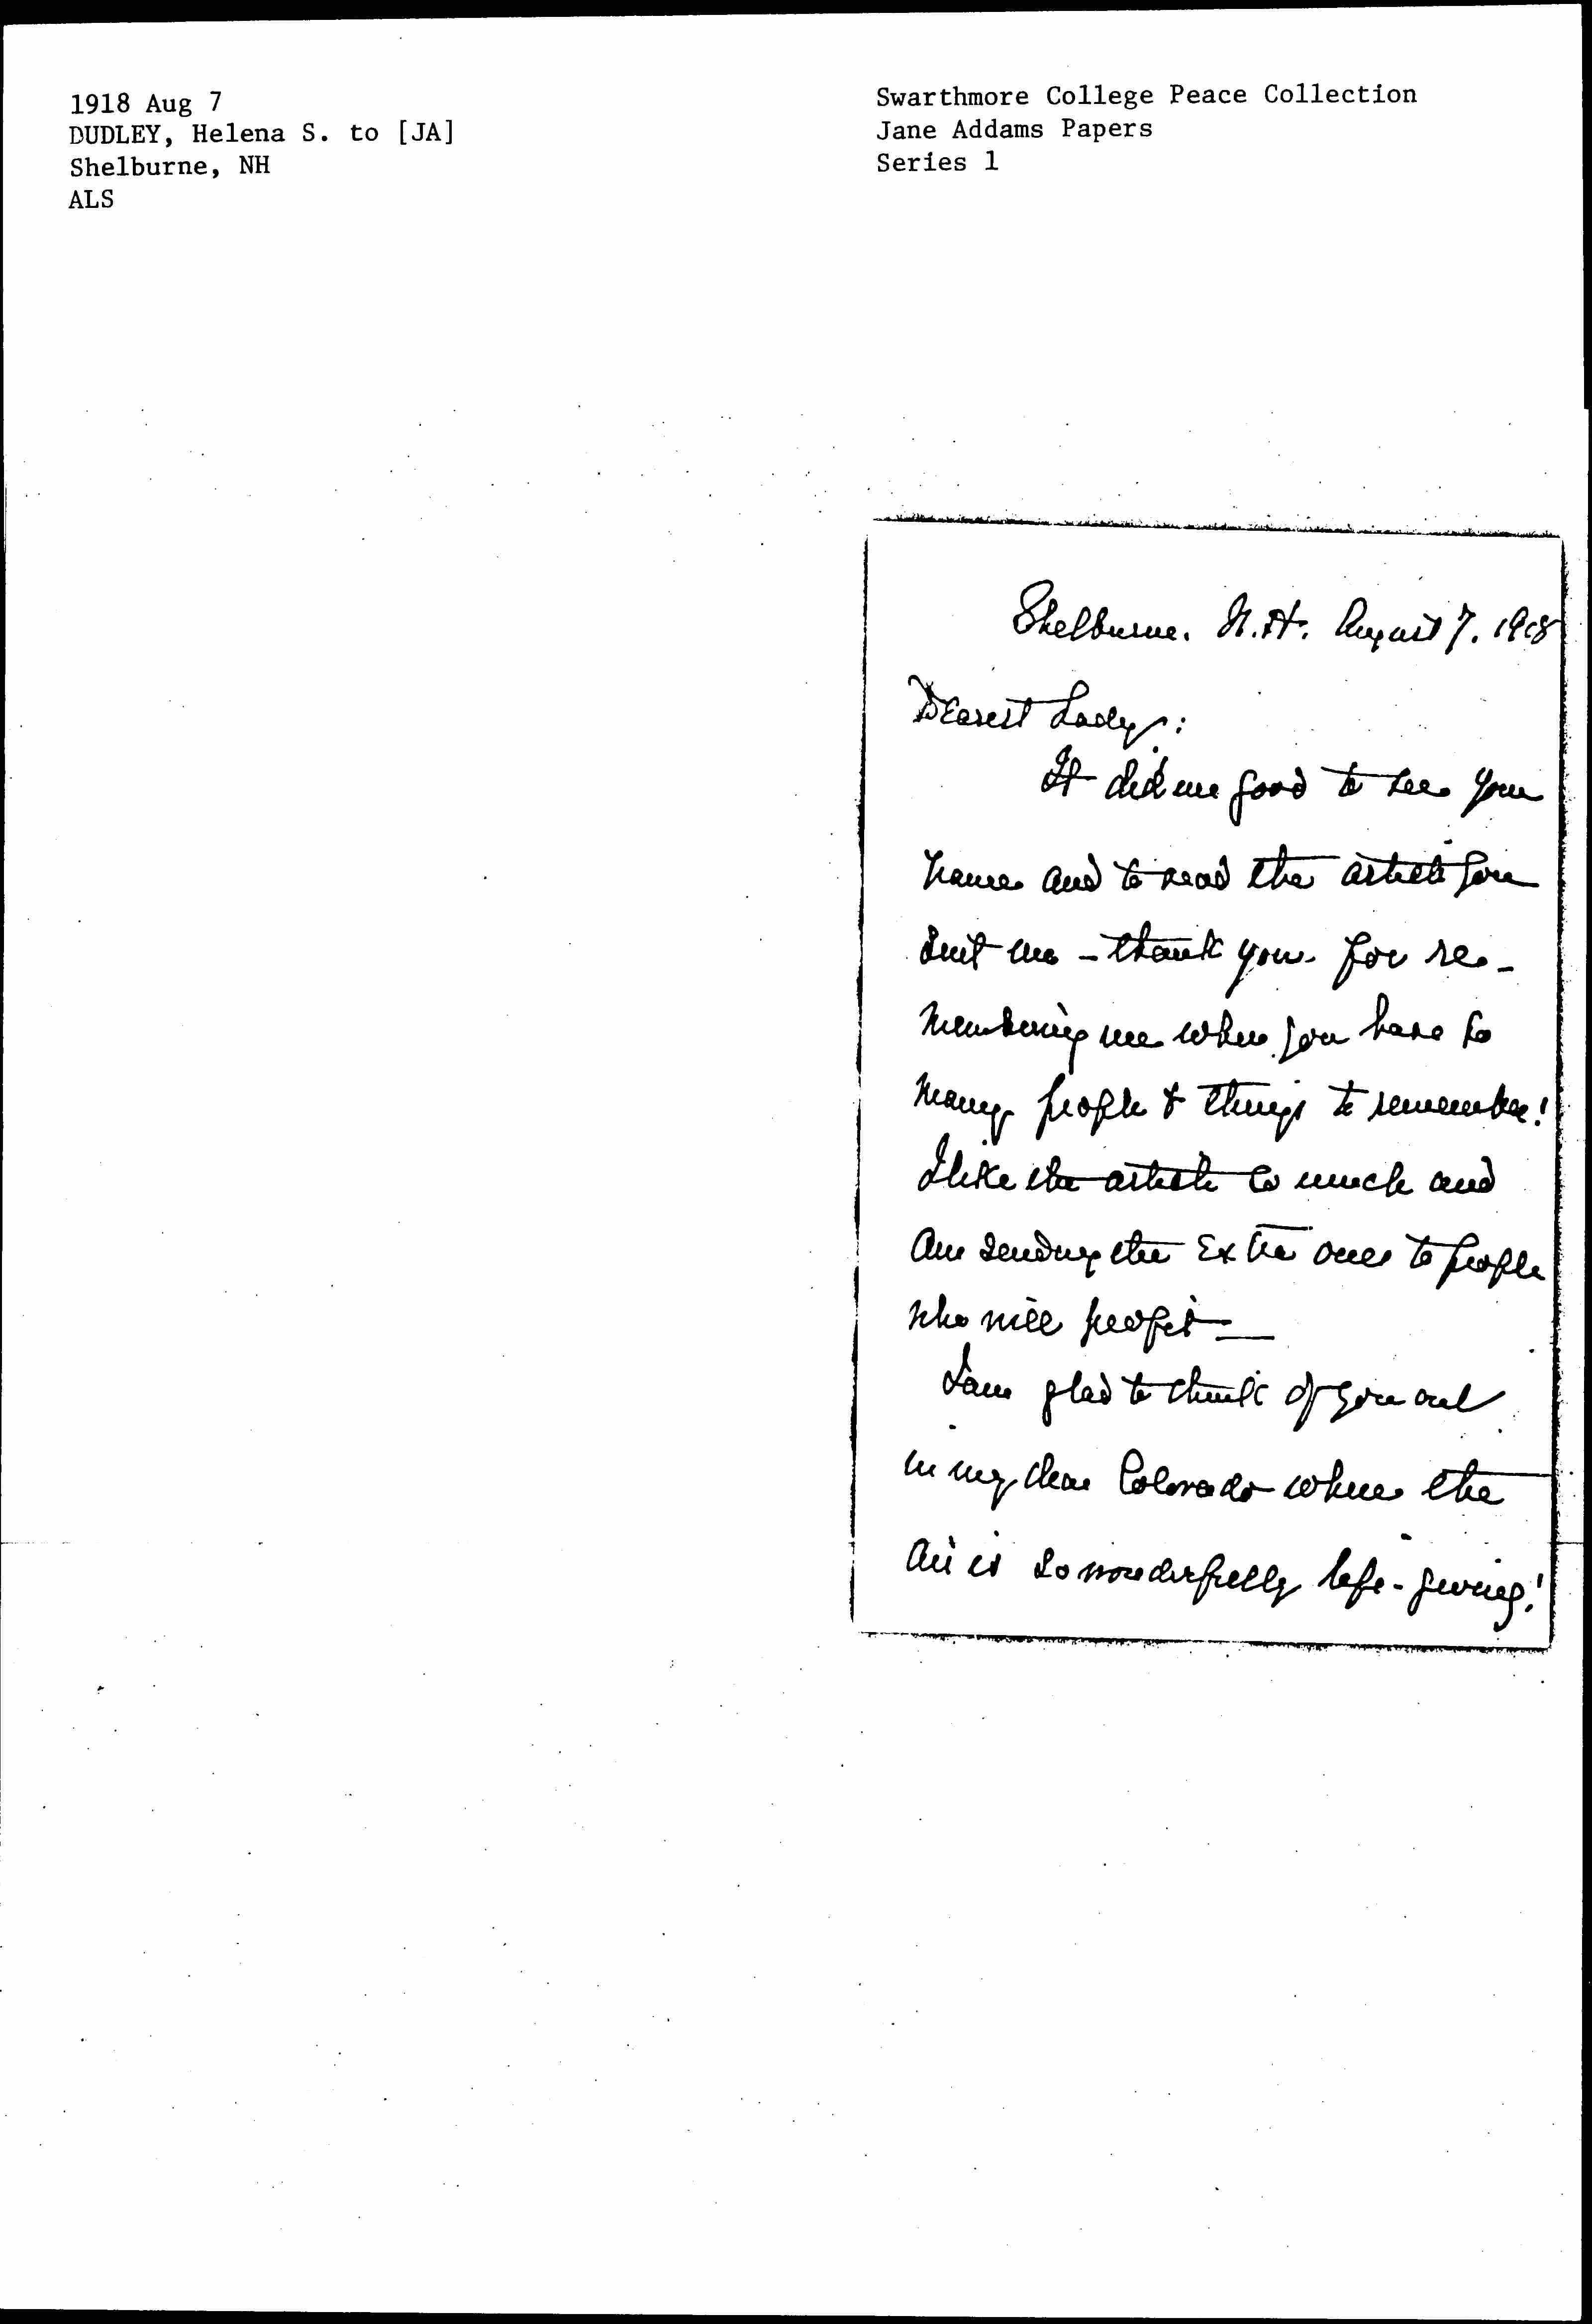 1918 Aug 7
DUDLEY, Helena S. to [JA]
Shelburne, NH
ALS
Swarthmore College Peace Collection
Jane Addams Papers
Series 1
Shelburne. N.H. August 7. 1918
Dearest Lady:
It did me good to see your
name and to read the article you
sent me - thank you for re-
membering me when you have so
many people & things to remember!
I like the article so much and
am sending the extra ones to people
who will profit —
I am glad to think of you out
in my dear Colorado where the
air is so wonderfully life-giving!